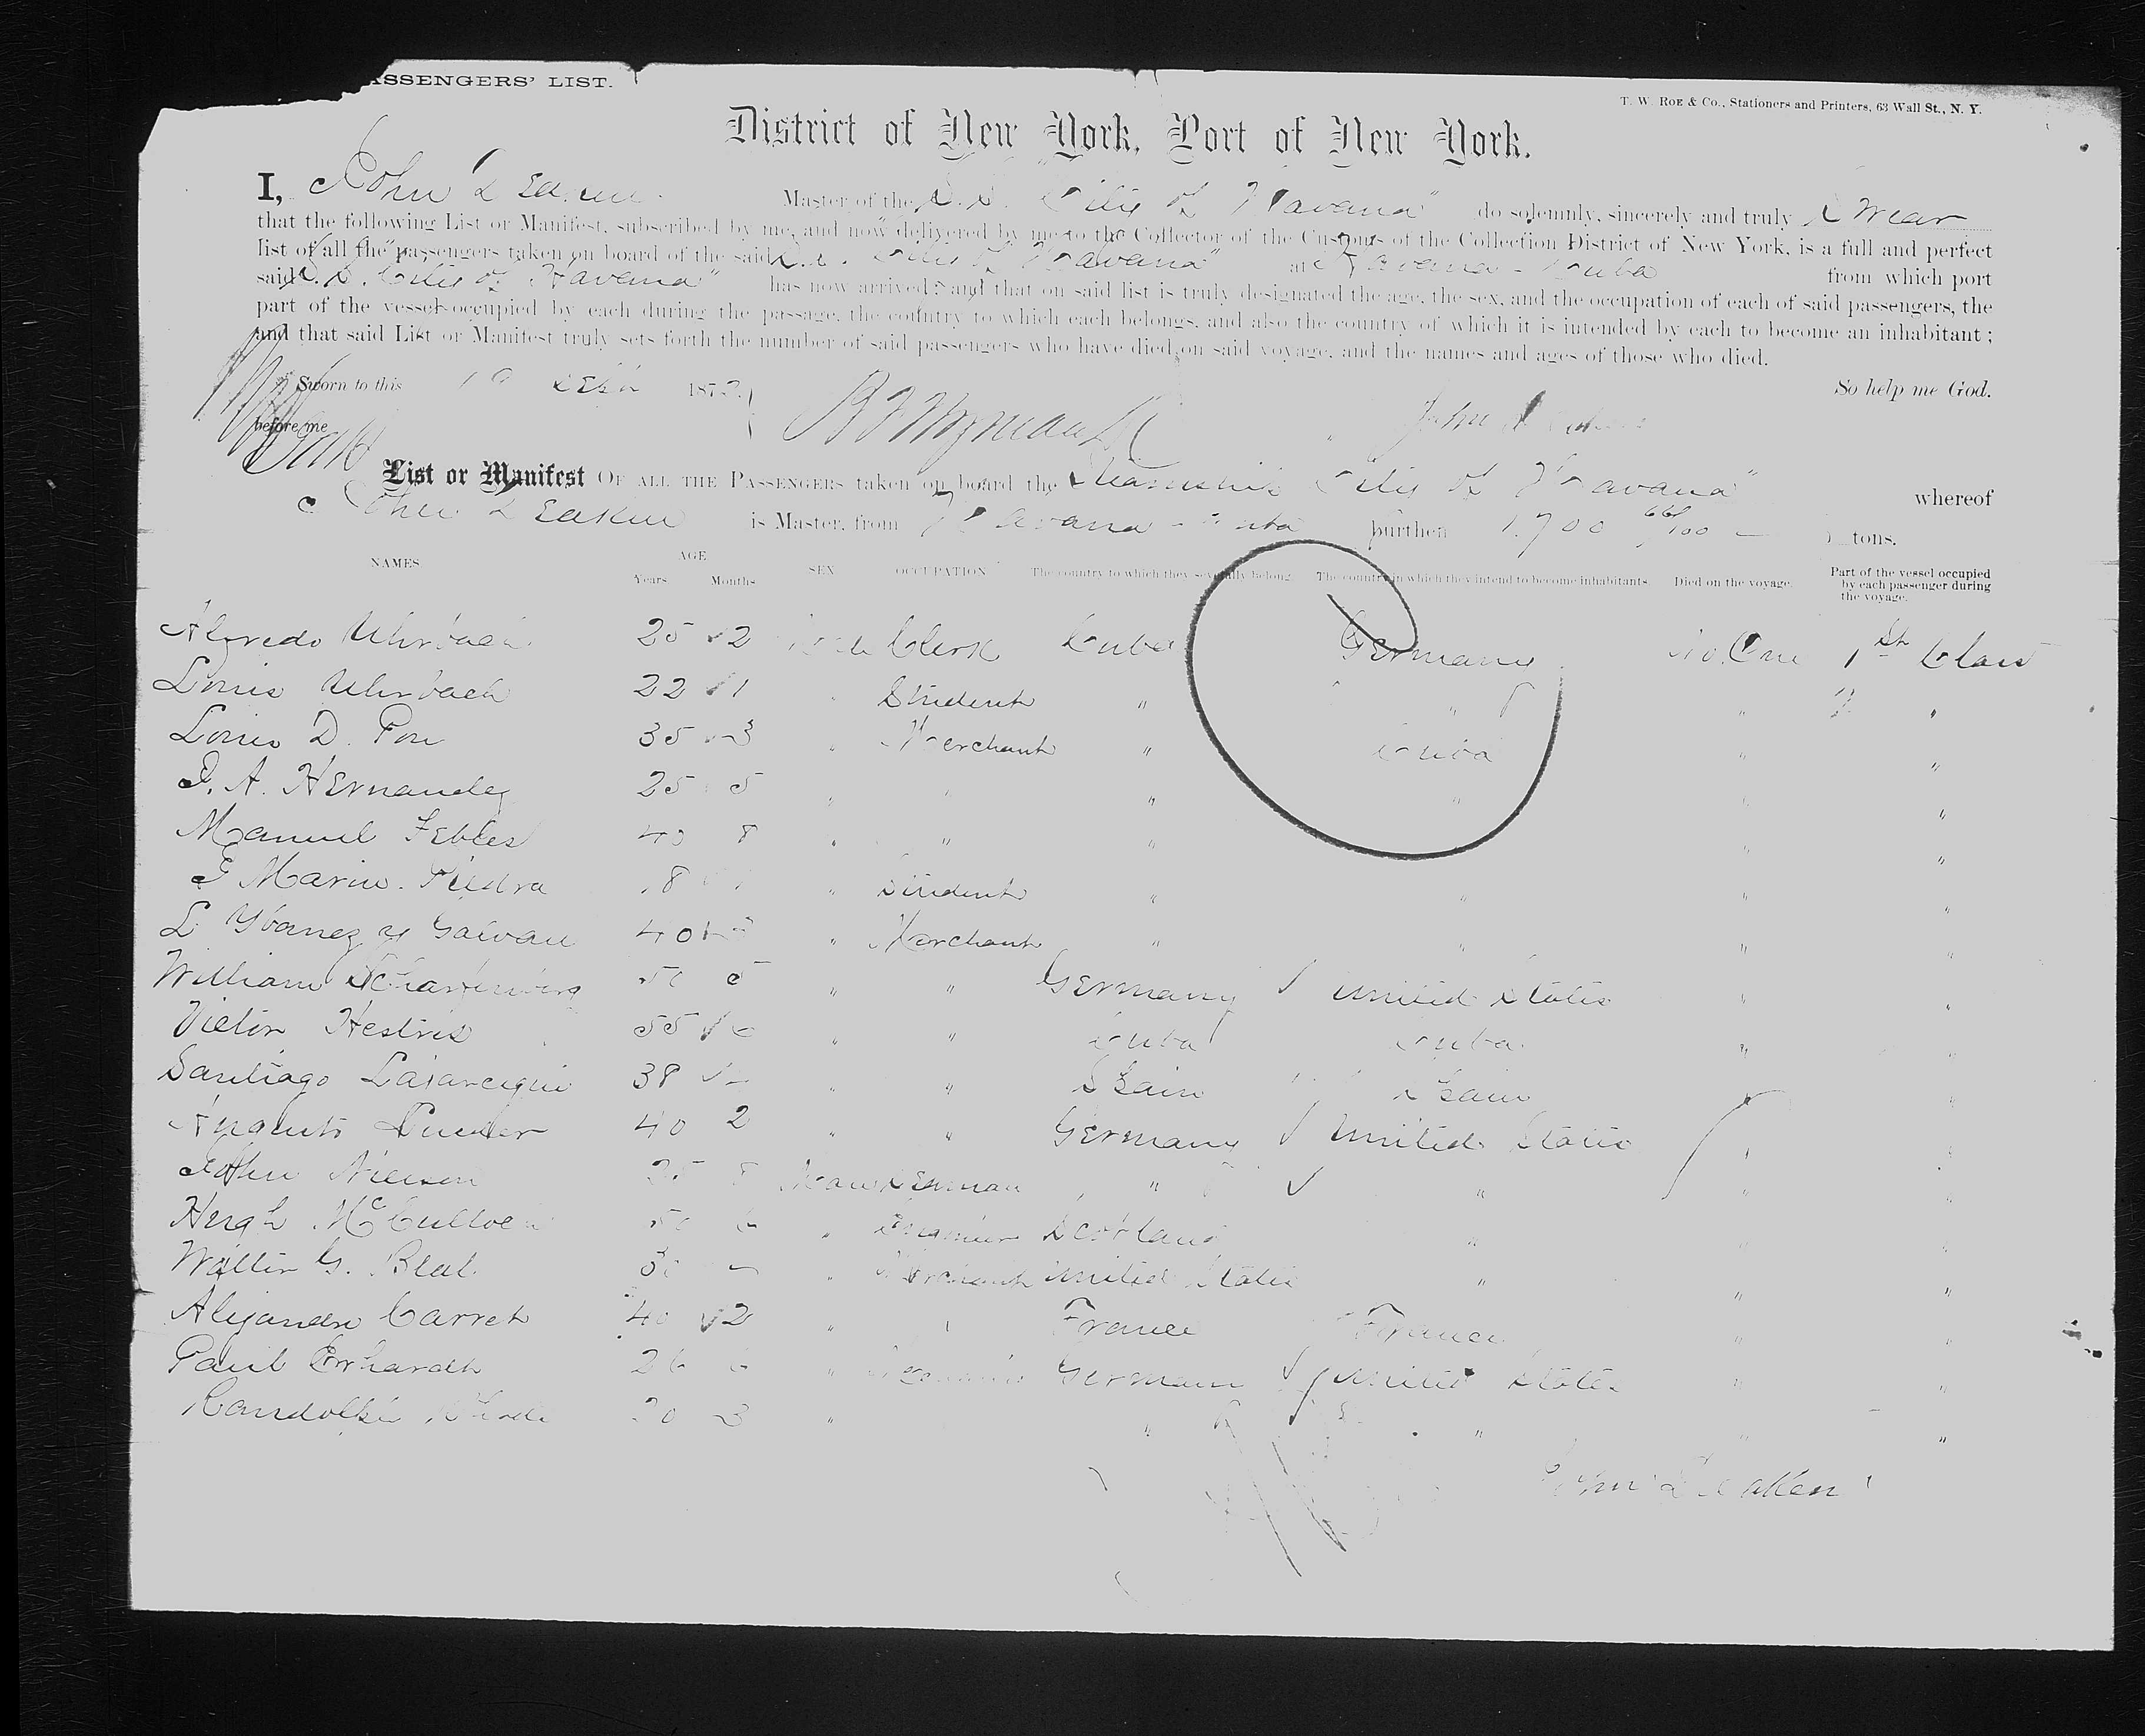 ASSENGERS' LIST.
T. W. ROE & CO., Stationers and Printers, 63 Wall St., N. Y.
District of New York, Port of New York.
I, John Deaken Master of the S.S. "City of Havana" do solemnly, sincerely and truly Swear
that the following List or Manifest, subscribed by me, and now delivered by me to the Collector of the Customs of the Collection District of New York, is a full and perfect
list of all the passengers taken on board of the said S.S. "City of Havana" at Havana - Cuba from which port
said S.S. "City of Havana" has now arrived; and that on said list is truly designated the age, the sex, and the occupation of each of said passengers, the
part of the vessel occupied by each during the passage, the country to which each belongs, and also the country of which it is intended by each to become an inhabitant;
and that said List or Manifest truly sets forth the number of said passengers who have died on said voyage, and the names and ages of those who died.
Sworn to this 187 So help me God.
before me
List or Manifest OF ALL THE PASSENGERS taken on board the Steamship "City of Havana" whereof
John Deaken is Master, from Havana - Cuba burthen 1.700 66/100 tons.
NAMES AGE Years Months SEX OCCUPATION The country to which they severally belong The country in which they intend to become inhabitants Died on the voyage Part of the vessel occupied by each passenger during the voyage.
Alfredo Uhrbach 25 2 Clerk Cuba Germany No One 1st Class
Louis Uhrbach 22 1 " Student " " " "
Louis D. Pou 35 3 " Merchant " Cuba " "
J. A. Hernandez 25 5 " " " " " "
Manuel Febles 40 8 " " " " "
Marin Piedra 18 " Student " " " "
L. Ybanez y Galvan 40 " Merchant " " " "
William Scharfenberg 50 5 " " Germany United States " "
Victor Hestris 55 " " Cuba Cuba " "
Santiago 38 - " " Spain Spain "
Augusto 40 2 " " Germany United States " "
John 25 8 " " " "
Hugh McCulloch 50 6 " Engineer Scotland " " "
Walter G. - " Merchant United States " " "
Alejandro Carret 40 2 " " France France " "
Paul Erhardt 26 6 " Germany United States " "
20 3 " " " " "
John Deaken